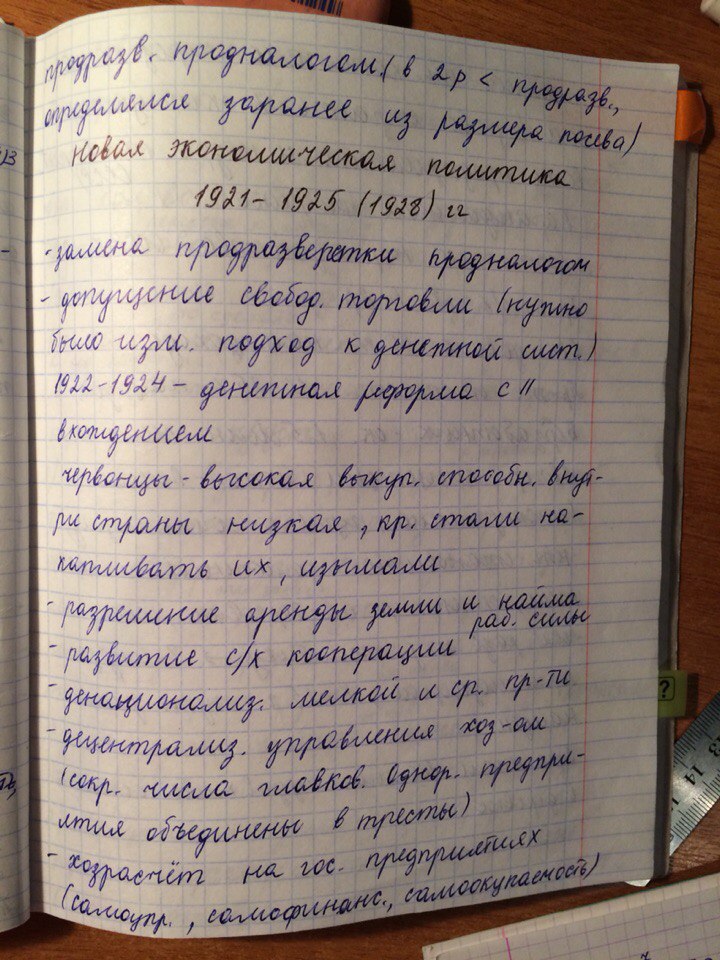 продразв. продналогом (в 2р < продразв.,
определялся заранее из размера посева)
Новая экономическая политика
1921 - 1925 (1928) гг
- замена продразверстки продналогом
- допущение свобод. торговли (нужно
было изм. подход к денежной сист.)
1922-1924 - денежная реформа с ||
вхождением
червонцы - высокая выкуп. способн. внут-
ри страны низкая, кр. стали на-
капливать их, изымали
- разрешение аренды земли и найма
раб. силы
- развитие с/х кооперации
- денационализ. мелкой и ср. пр-ти
- децентрализ. управления хоз-ом
(сокр. числа главков. Однор. предпри-
ятия объединены в тресты)
- хозрасчёт на гос. предприятиях
(самоупр., самофинанс., самоокупаемость)
?
13 14